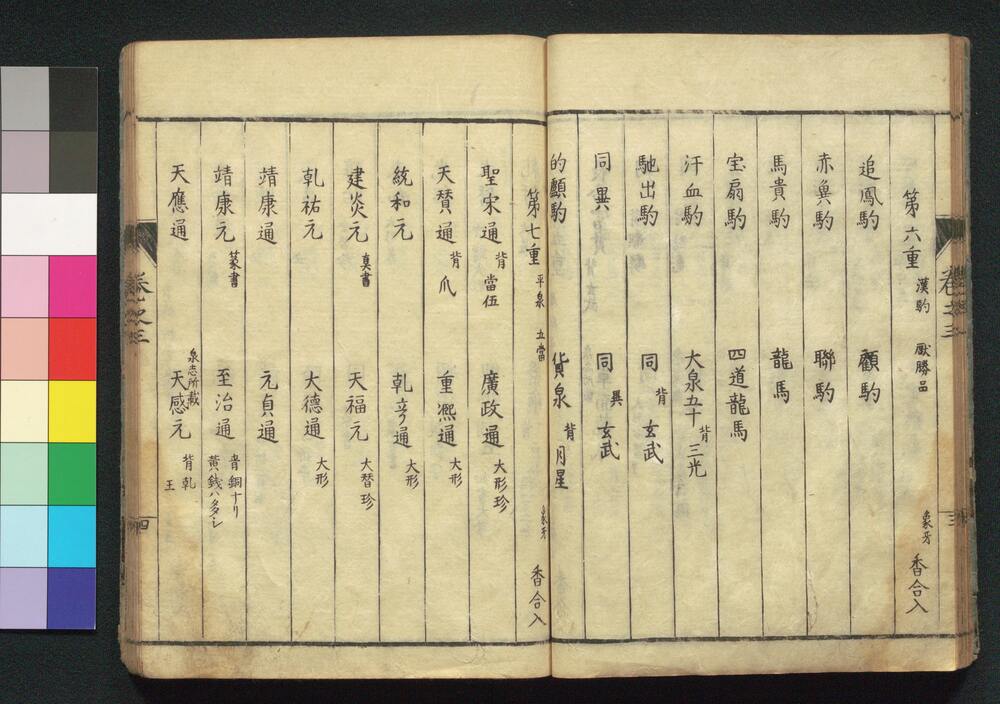 第六重 漢駒 厭勝品 象牙 香合入
追鳳駒 顧駒
赤兔駒 聯駒
馬貴駒 龍馬
宝扇駒 四道龍馬
汗血駒 大泉五十 背 三光
馳出駒 同 背 玄武
同 異 同 異 玄武
的顱駒 貨泉 背 月星
第七重 平泉 五當 象牙 香合入
聖宋通 背 當伍 廣政通 大形珍
天賛通 背 爪 重凞通 大形
統和元 乾亨通 大形
建炎元 真書 天福元 大替珍
乹祐元 大德通 大形
靖康通 元貞通
靖康元 篆書 至治通 青銅ナリ 黄銭ハ多シ
天應通 泉志所載 天感元 背 乹 王
卷之三
三
四